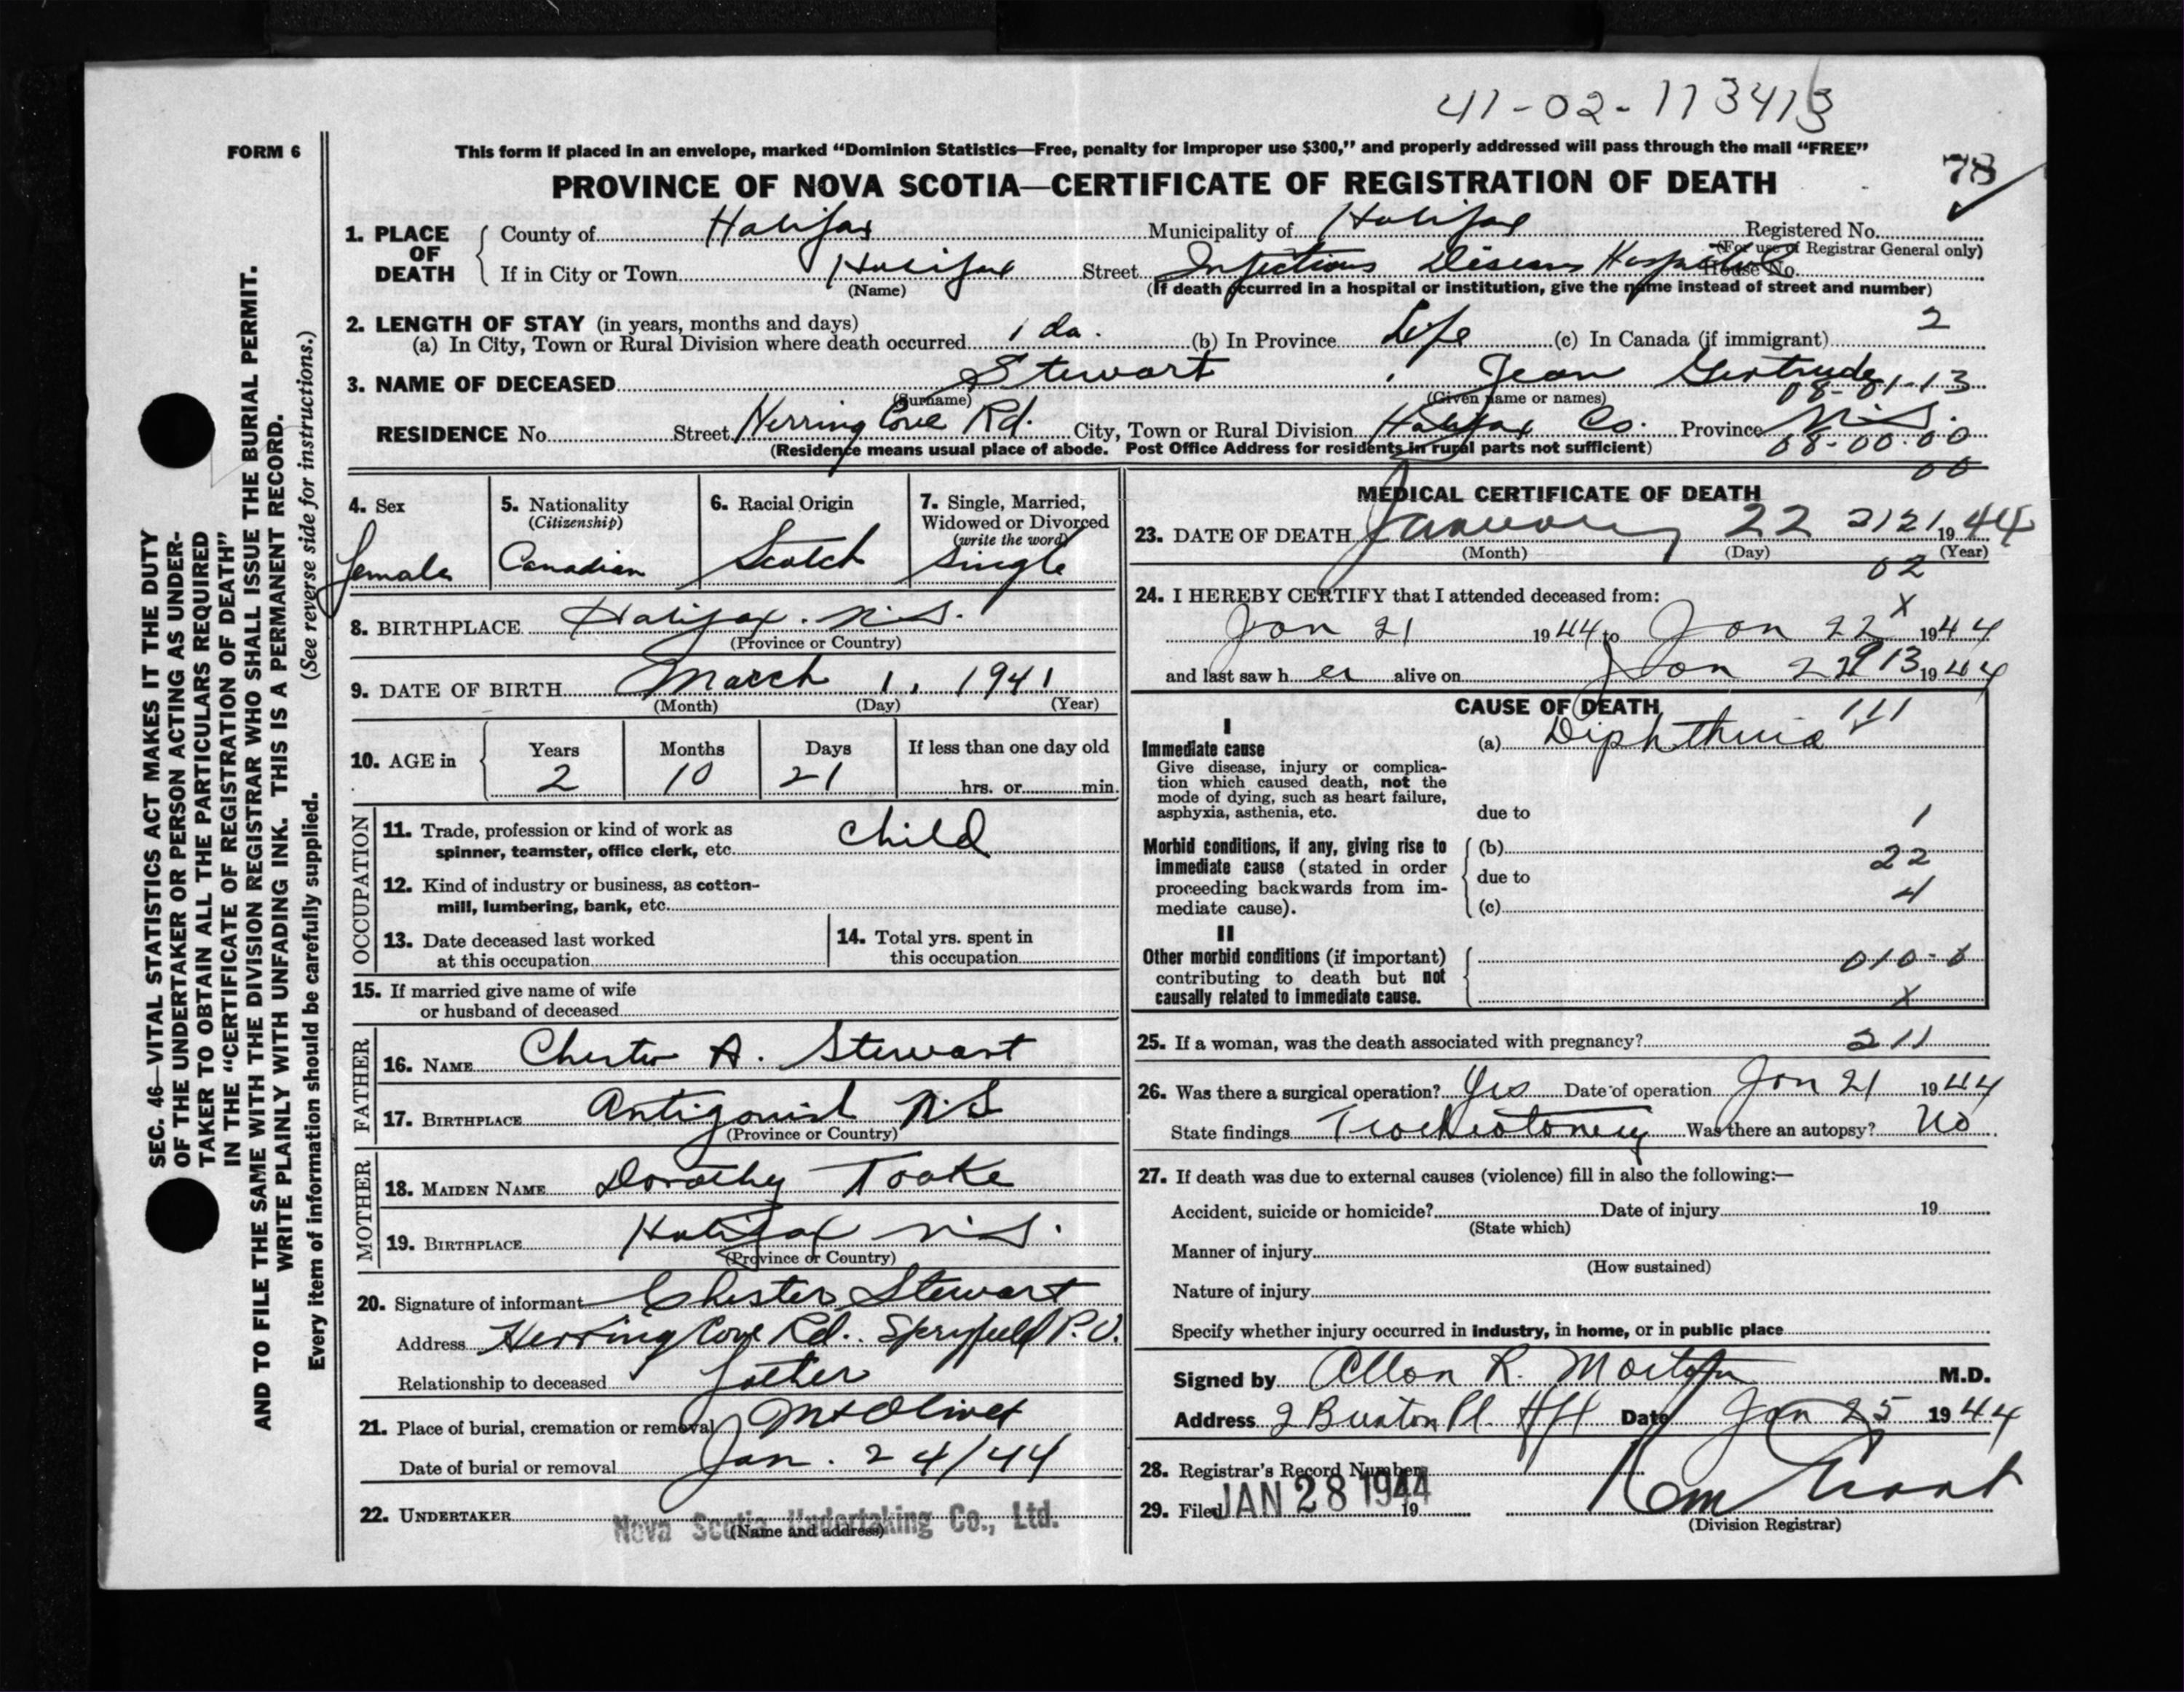 41-02-113413
FORM 6
This form if placed in an envelope, marked “Dominion Statistics—Free, penalty for improper use $300,” and properly addressed will pass through the mail “FREE”
78
PROVINCE OF NOVA SCOTIA—CERTIFICATE OF REGISTRATION OF DEATH
1. PLACE OF DEATH County of Halifax Municipality of Halifax Registered No.
(For use of Registrar General only)
If in City or Town Halifax Street Infectious Disease Hospital House No.
(Name) (If death occurred in a hospital or institution, give the name instead of street and number)
2. LENGTH OF STAY (in years, months and days)
(a) In City, Town or Rural Division where death occurred 1 da. (b) In Province Life (c) In Canada (if immigrant) 2
3. NAME OF DECEASED Stewart, Jean Gertrude
(Surname) (Given name or names) 08-01-13
RESIDENCE No. Street Herring Cove Rd. City, Town or Rural Division Halifax Co. Province N.S.
(Residence means usual place of abode. Post Office Address for residents in rural parts not sufficient) 08-00.00
00
4. Sex Female
5. Nationality (Citizenship) Canadian
6. Racial Origin Scotch
7. Single, Married, Widowed or Divorced (write the word) Single
8. BIRTHPLACE Halifax. N.S.
(Province or Country)
9. DATE OF BIRTH March 1, 1941
(Month) (Day) (Year)
10. AGE in Years 2 Months 10 Days 21 If less than one day old
hrs. or min.
OCCUPATION
11. Trade, profession or kind of work as spinner, teamster, office clerk, etc. Child
12. Kind of industry or business, as cotton-mill, lumbering, bank, etc.
13. Date deceased last worked at this occupation
14. Total yrs. spent in this occupation
15. If married give name of wife or husband of deceased
FATHER
16. NAME Chester A. Stewart
17. BIRTHPLACE Antigonish N.S
(Province or Country)
MOTHER
18. MAIDEN NAME Dorothy Tooke
19. BIRTHPLACE Halifax N.S.
(Province or Country)
20. Signature of informant Chester Stewart
Address Herring Cove Rd. Spryfield P.O.
Relationship to deceased father
21. Place of burial, cremation or removal Mt Olivet
Date of burial or removal Jan. 24/44
22. UNDERTAKER Nova Scotia Undertaking Co., Ltd.
(Name and address)
MEDICAL CERTIFICATE OF DEATH
23. DATE OF DEATH January 22 2121 1944
(Month) (Day) (Year)
02
24. I HEREBY CERTIFY that I attended deceased from:
X
Jan 21 1944 to Jan 22 1944
and last saw her alive on Jan 22 913 1944
CAUSE OF DEATH 111
I
Immediate cause (a) Diphtheria
Give disease, injury or complication which caused death, not the mode of dying, such as heart failure, asphyxia, asthenia, etc.
due to 1
Morbid conditions, if any, giving rise to immediate cause (stated in order proceeding backwards from immediate cause).
(b) 22
due to 4
(c)
II
Other morbid conditions (if important) contributing to death but not causally related to immediate cause.
X
25. If a woman, was the death associated with pregnancy? 211
26. Was there a surgical operation? Yes Date of operation Jan 21 1944
State findings Tracheotomy Was there an autopsy? No
27. If death was due to external causes (violence) fill in also the following:—
Accident, suicide or homicide? Date of injury 19
(State which)
Manner of injury
(How sustained)
Nature of injury
Specify whether injury occurred in industry, in home, or in public place
Signed by Allan R. Morton M.D.
Address 2 Buxton Pl. Hfx Date Jan 25 1944
28. Registrar's Record Number
29. Filed JAN 28 1944 19
(Division Registrar)
SEC. 46—VITAL STATISTICS ACT MAKES IT THE DUTY
OF THE UNDERTAKER OR PERSON ACTING AS UNDER-
TAKER TO OBTAIN ALL THE PARTICULARS REQUIRED
IN THE “CERTIFICATE OF REGISTRATION OF DEATH”
AND TO FILE THE SAME WITH THE DIVISION REGISTRAR WHO SHALL ISSUE THE BURIAL PERMIT.
WRITE PLAINLY WITH UNFADING INK. THIS IS A PERMANENT RECORD.
(See reverse side for instructions.)
Every item of information should be carefully supplied.